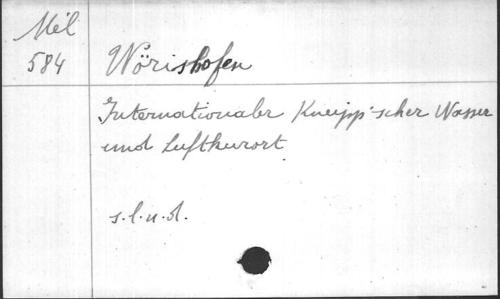 Mél
584
Wörishofen
Internationaler Kneipp'scher Wasser
und Luftkurort
s.l.n.d.